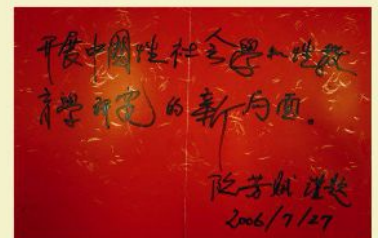 开展中國性社会學和性教
育學研究的新局面。
阮芳赋 谨题
2006/7/27